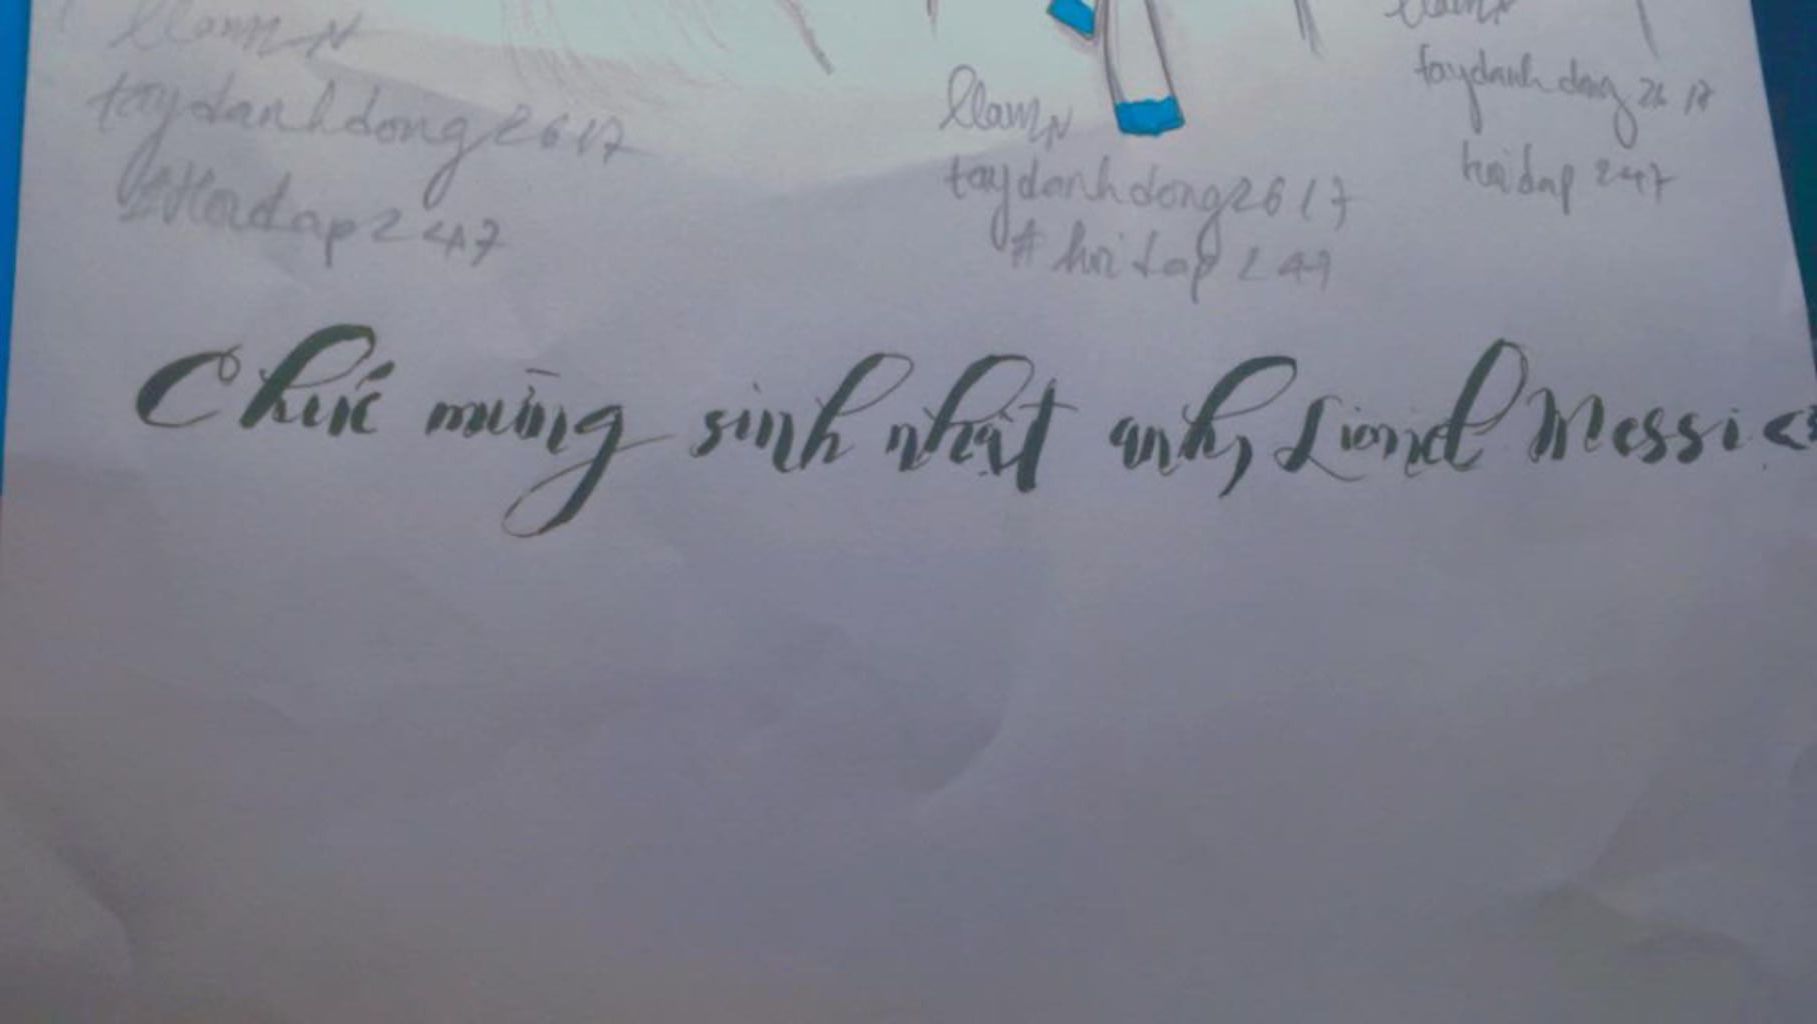 taydanhdong2617
#Hoidap247
taydanhdong2617
#hoidap247
taydanhdong2617
hoidap247
Chúc mừng sinh nhật anh, Lionel Messi